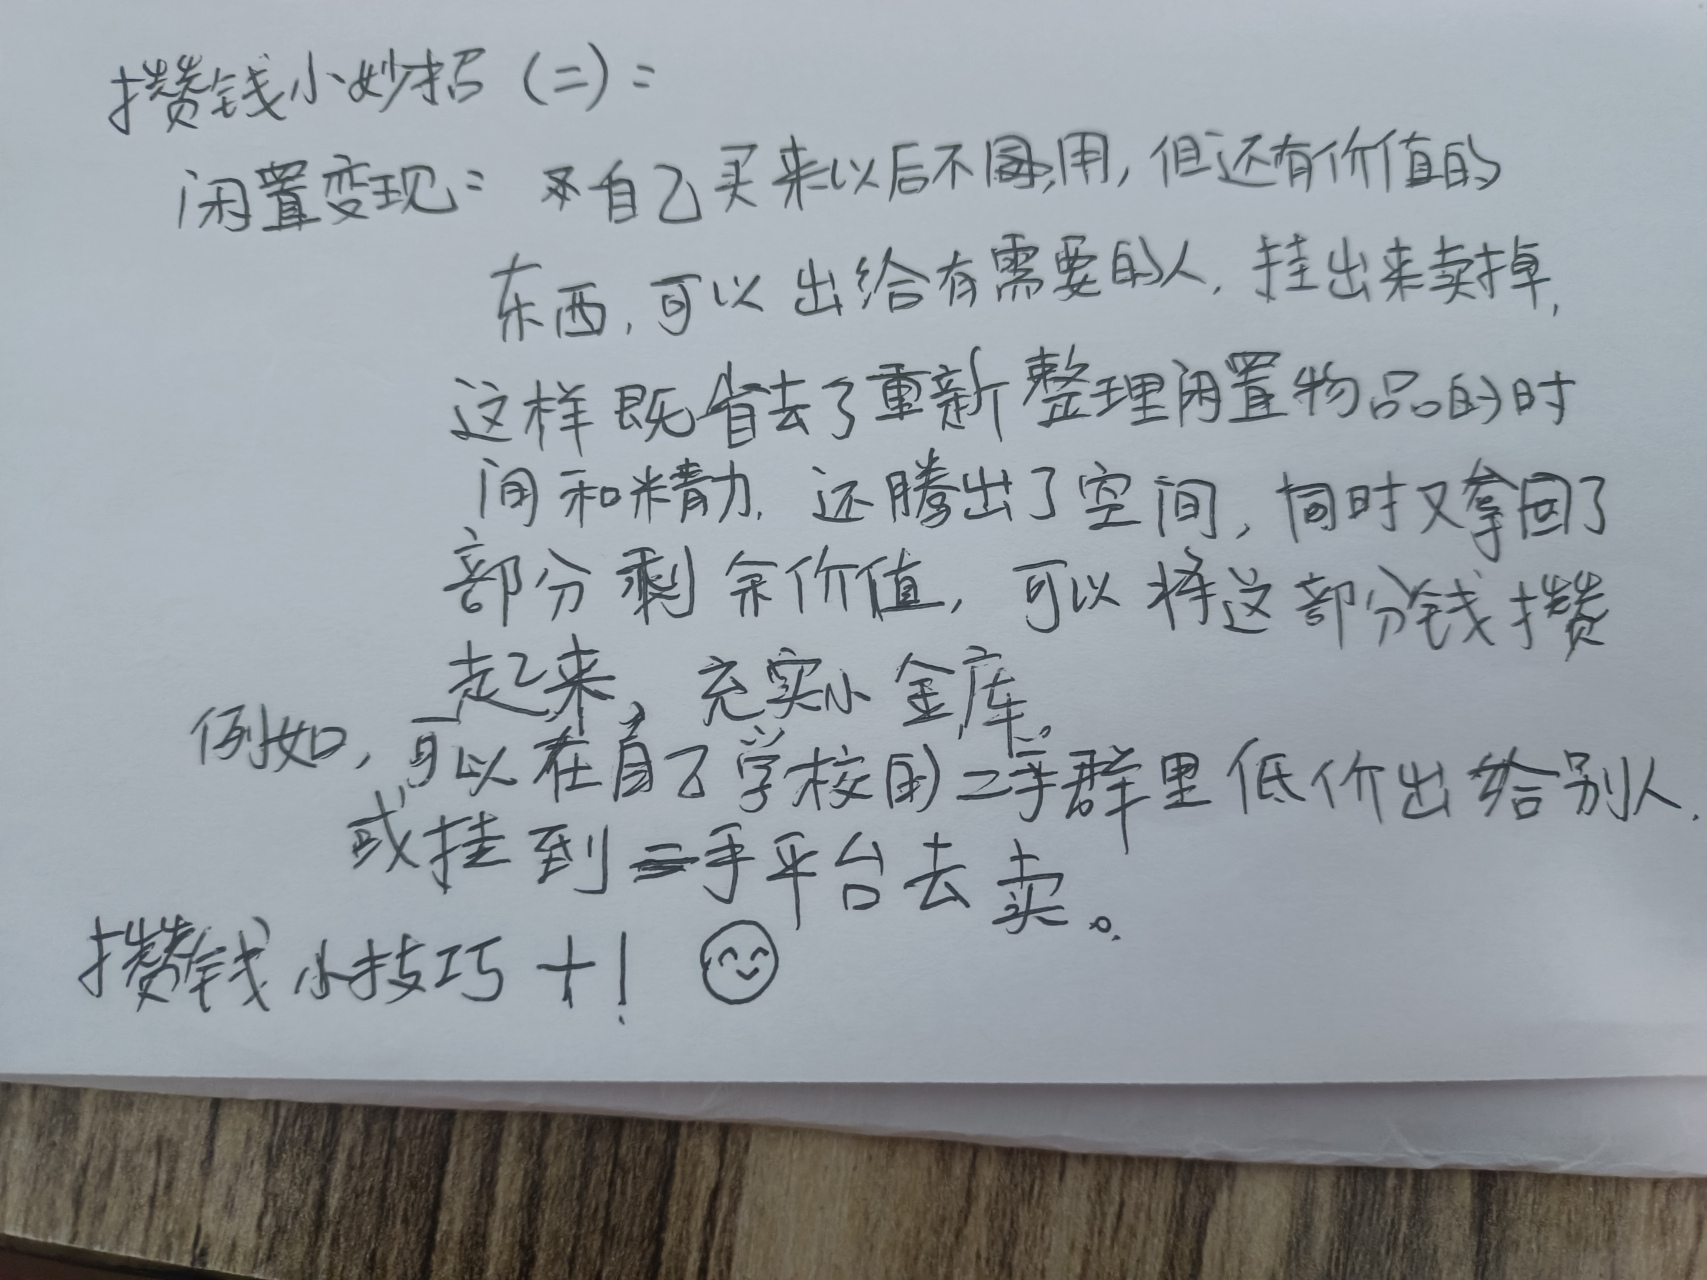 攒钱小妙招（二）：
闲置变现：自己买来以后不用，但还有价值的
东西，可以出给有需要的人，挂出来卖掉，
这样既省去了重新整理闲置物品的时
间和精力，还腾出了空间，同时又拿回了
部分剩余价值，可以将这部分钱攒
起来，充实小金库。
例如，可以在自己学校的二手群里低价出给别人，
或挂到二手平台去卖。
攒钱小技巧+！